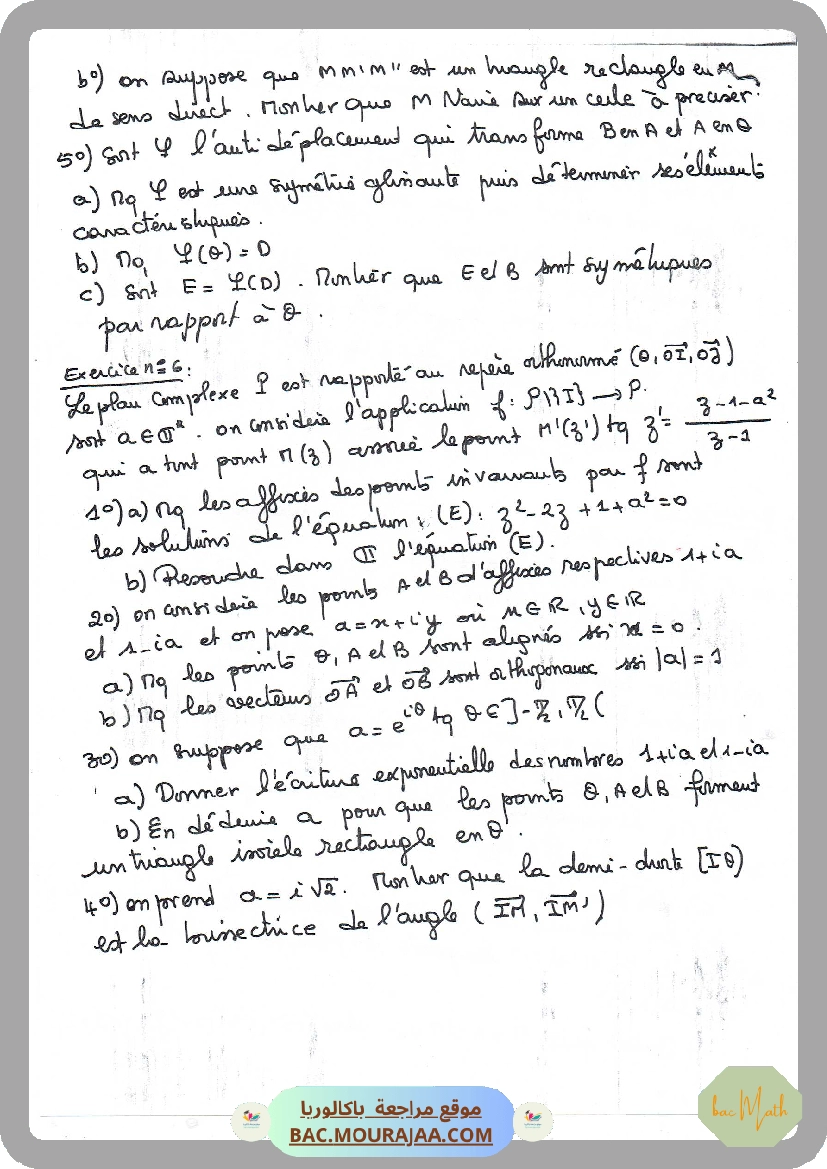 b°) on suppose que MM'M" est un triangle rectangle en M
de sens direct. Montrer que M Varie sur un cercle à préciser.
5°) Soit φ l'antidéplacement qui transforme B en A et A en O
a) Mq φ est une symétrie glissante puis déterminer ses éléments
caractéristiques.
b) Mq φ(O) = D
c) Soit E = φ(D). Montrer que E et B sont symétriques
par rapport à O.
Exercice n° 6 :
Le plan complexe P est rapporté au repère orthonormé (O, OI, OJ)
soit a ∈ ℂ*. on considère l'application f: P\{I} → P.
qui a tout point M(z) associe le point M'(z') tq z' = (z-1-a²)/(z-1)
1°) a) Mq les affixes des points invariants par f sont
les solutions de l'équation : (E): z² - 2z + 1 + a² = 0
b) Resoudre dans ℂ l'équation (E).
2°) on considère les points A et B d'affixes respectives 1+ia
et 1-ia et on pose a = x+iy où x ∈ ℝ, y ∈ ℝ
a) Mq les points O, A et B sont alignés ssi x = 0.
b) Mq les vecteurs OA et OB sont orthogonaux ssi |a| = 1
3°) on suppose que a = e^{iθ} tq θ ∈ ]-π/2, π/2(
a) Donner l'écriture exponentielle des nombres 1+ia et 1-ia
b) En déduire a pour que les points O, A et B forment
un triangle isocèle rectangle en O.
4°) on prend a = i√2. Montrer que la demi-droite [IO)
est la bissectrice de l'angle (IM, IM')
موقع مراجعة باكالوريا
BAC.MOURAJAA.COM
bac Math